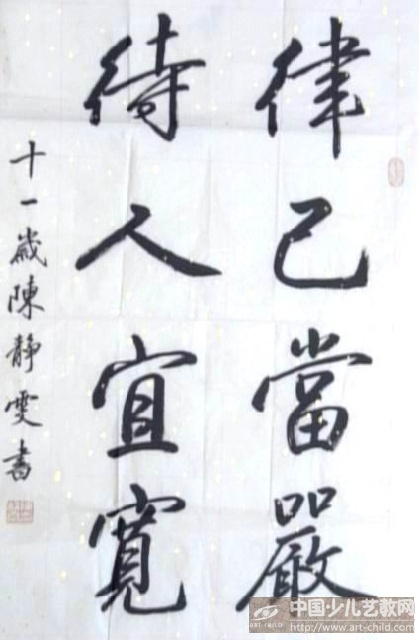 律己當嚴
待人宜寬
十一歲陳靜雯書
中国少儿艺教网
http://www.art-child.com
ART CHILD